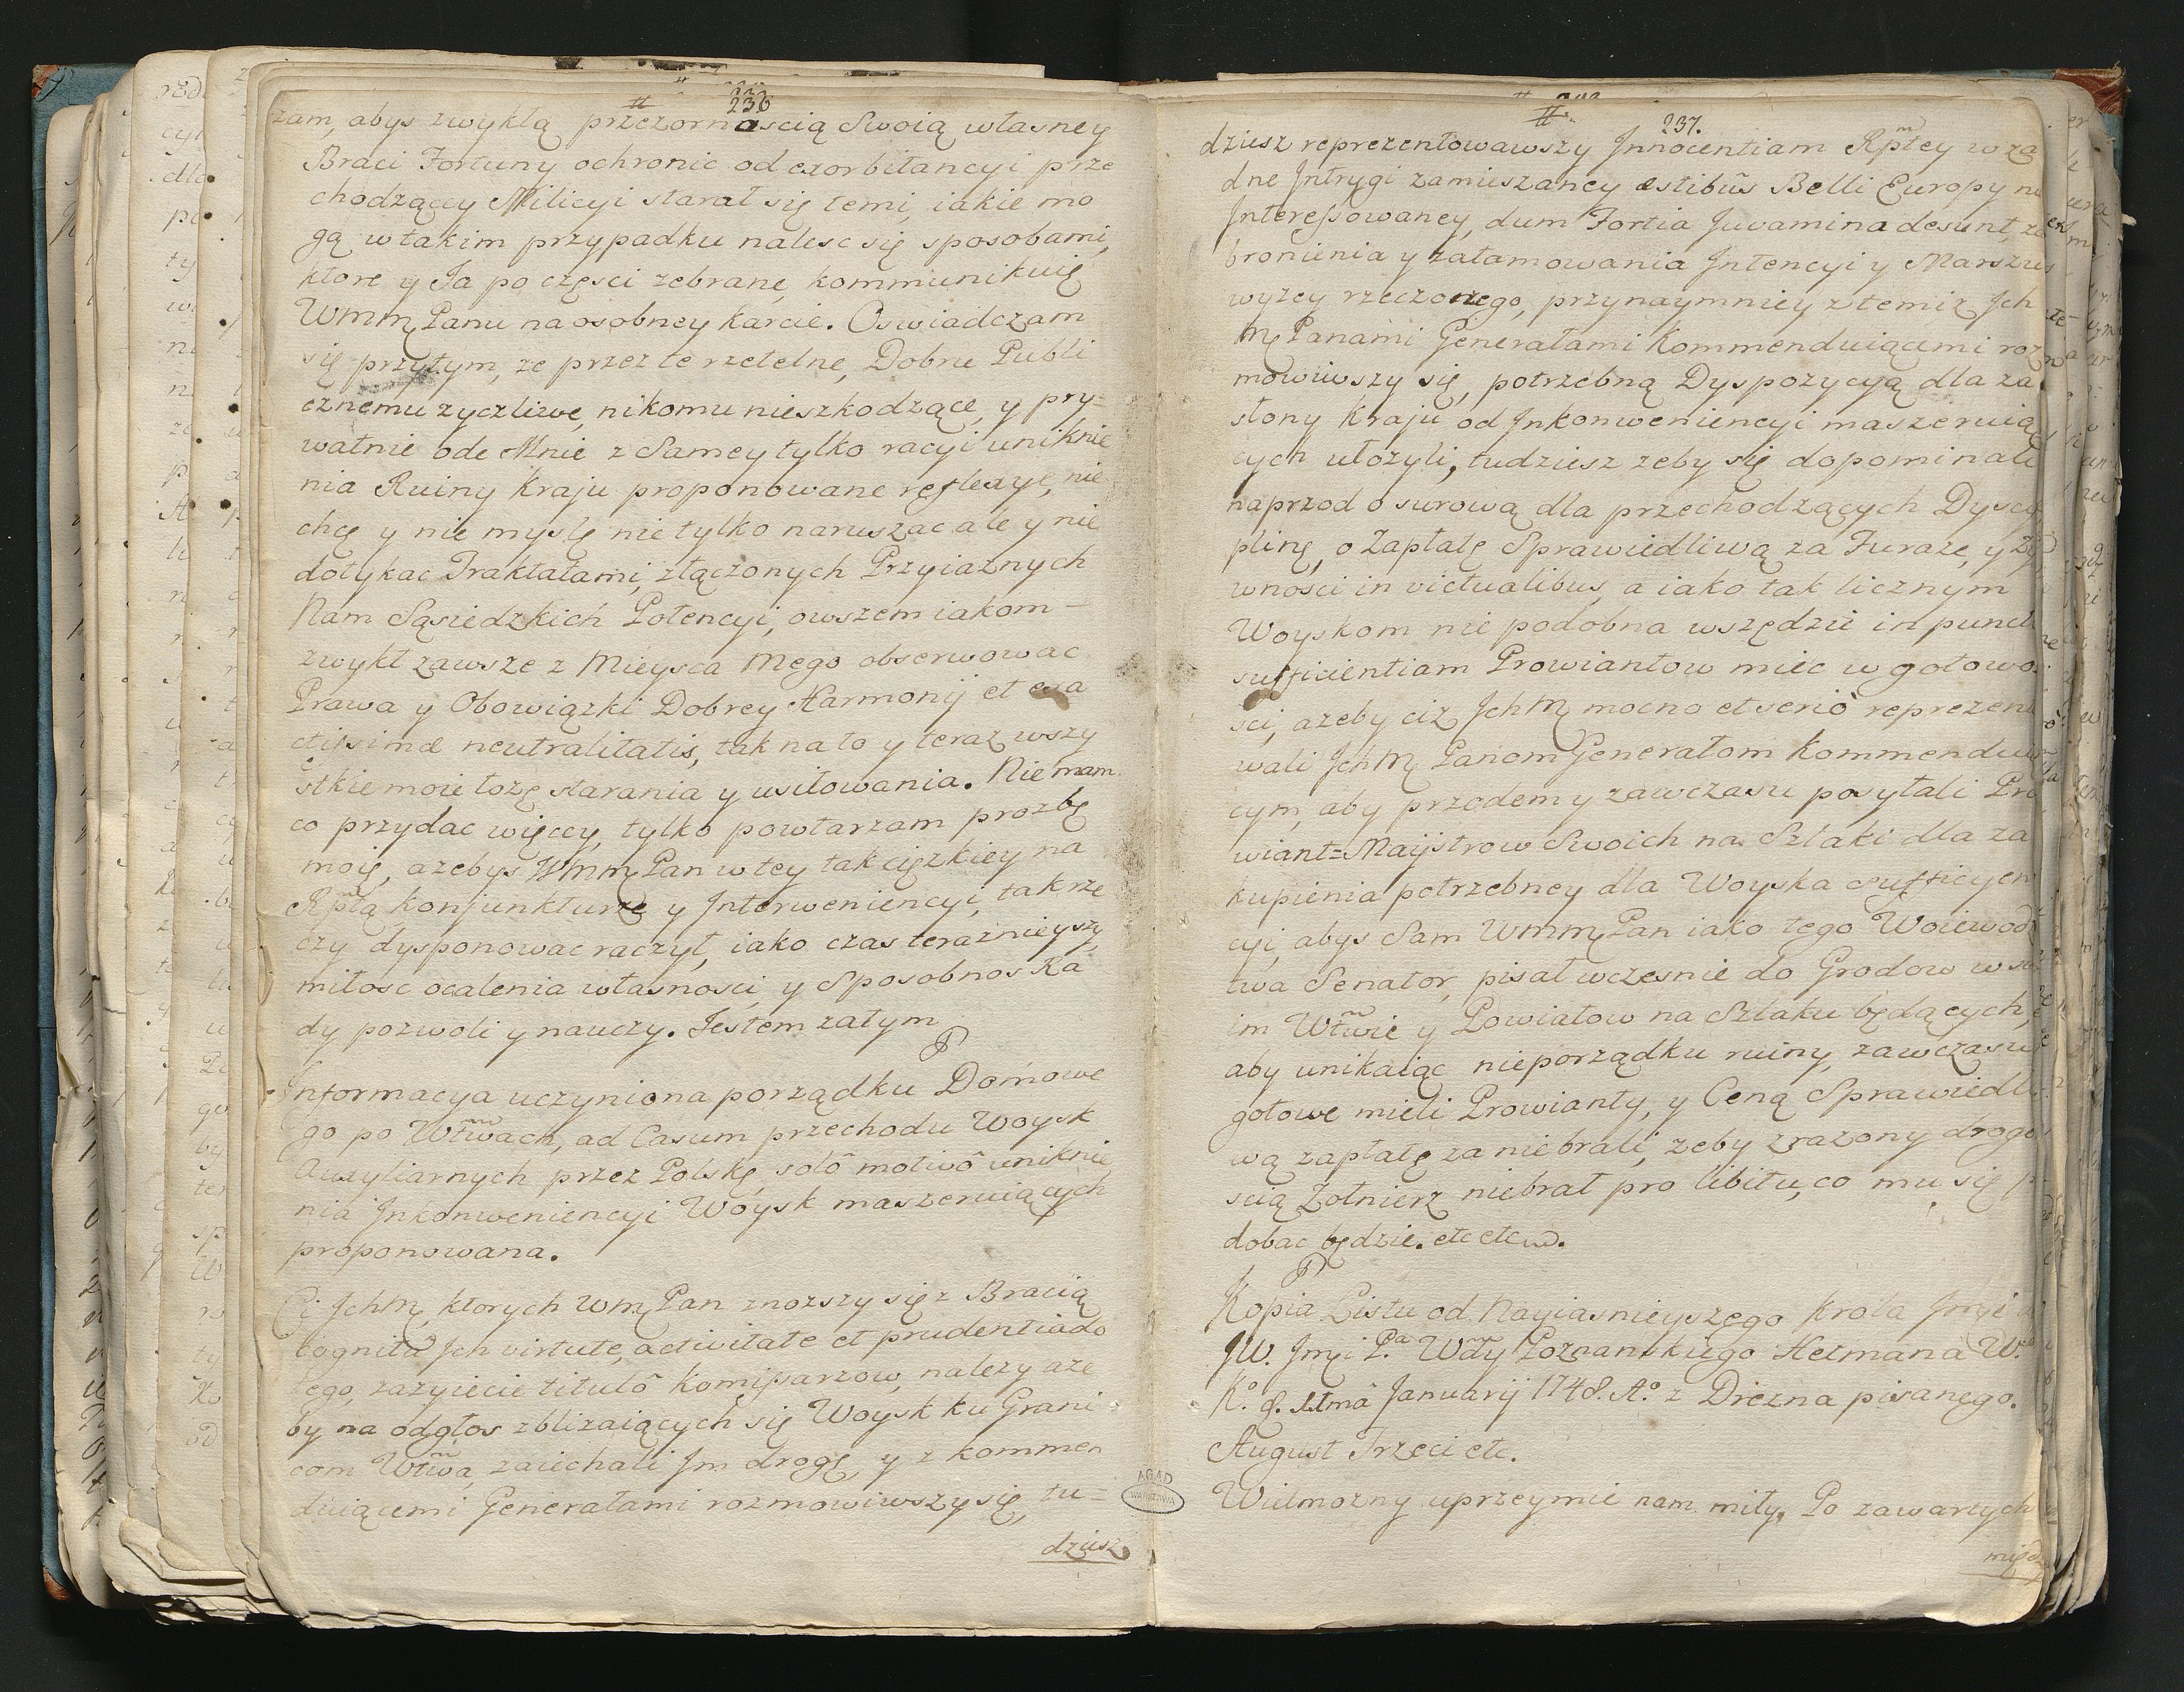 236
zam, abys zwykłą przezornoscią Swoią własney
Braci Fortuny ochronic od exorbitancyi prze
chodzącey Milicyi starał się temi, iakie mo
gą w takim przypadku nalesc się sposobami,
ktore y Ja po częsci zebrane, kommunikuię
WmmPanu na osobney karcie. Oswiadczam
się przytym, ze przez te rzetelne, Dobru Publi
cznemu zyczliwe, nikomu nieszkodzące, y pry=
watnie ode Mnie z Samey tylko racyi uniknie
nia Ruiny Kraju proponowane reflexye, nie
chcę y nie myslę nie tylko naruszac ale y nie
dotykac Traktatami, złączonych Przyiaznych
Nam Sąsiedzkich Potencyi, owszem iakom-
zwykł zawsze z Mieysca Mego obserwowac
Prawa y Obowiązki Dobrey Harmonij et exa
ctissimæ neutralitatis, tak na to y teraz wszy
stkie moie łozę starania y usiłowania. Nie mam
co przydac więcey, tylko powtarzam prozbę
moię, azebys WmmPan w tey tak cięzkiey na
Rptą konjunkturze y Interweniencyi, tak rze
czy dysponowac raczył, iako czas teraznieyszy,
miłosc ocalenia własnosci, y Sposobnos Ra
dy pozwoli y nauczy. Jestem zatym
Informacya uczyniona porządku Domowe
go po Wtwach, ad Casum przechodu Woysk
Auxyliarnych przez Polskę, solô motivô uniknie
nia Inkonweniencyi Woysk maszeruiących
proponowana.
Ci Ichm, ktorych WmPan zniozszy się z Bracią
cognita Ich virtute, activitate et prudentia do
tego, zazyiecie titulô Komissarzow, nalezy aze
by na odgłos zblizaiących się Woysk ku Grani
com Wtwa, zaiechali Im drogę, y z kommen
duiącemi Generałami rozmowiwszy się, tu=
dziesz
237.
dziesz reprezentowawszy Innocentiam Rptey w za
dne Intrygi zamieszaney æstibus Belli Europy nie
Interessowaney, dum Fortia Juvamina desunt, za
bronienia y zatamowania Intencyi y Marszu
wyzey rzeczonego, przynaymniey z temiz Ich
m Panami Generałami Kommenduiącemi roz
mowiwszy się, potrzebną Dyspozycyą dla za
słony Kraju od Inkonweniencyi maszeruią
cych ułozyli, tudziesz zeby się dopominali
naprzod o surową dla przechodzących Dyscy
plinę, o Zapłatę Sprawiedliwą za Furaze, y zy
wnosci in victualibus, a iako tak licznym
Woyskom nie podobna wszędzie in puncto
sufficientiam Prowiantow miec w gotowo
sci, azeby ciz Ichm mocno et seriò reprezento
wali Ichm Panom Generałom Kommendui
cym, aby przodem y zawczasu posyłali Pro
wiant=Maystrow Swoich na Szlaki dla za
kupienia potrzebney dla Woyska sufficyen
cyi, abys Sam WmmPan iako tego Woiewodz
twa Senator, pisał wczesnie do Grodow w swo
im Wtwie y Powiatow na Szlaku będących,
aby unikaiąc nieporządku ruiny, zawczasu
gotowe mieli Prowianty, y Ceną Sprawiedli
wą zapłatę za nie brali, zeby zrazony drogo
scią Zołnierz niebrał pro libitu, co mu się po
dobac będzie. etc etc
Kopia Listu od Nayiasnieyszego Krola Jmci
JW. Jmci Pa Wdy Poznanskiego Hetmana W.
Ko. d. Januarij 1748. Ao. z Drezna pisanego.
August Trzeci etc.
Wielmozny uprzeymie nam miły. Po zawartych
AGAD
WARSZAWA